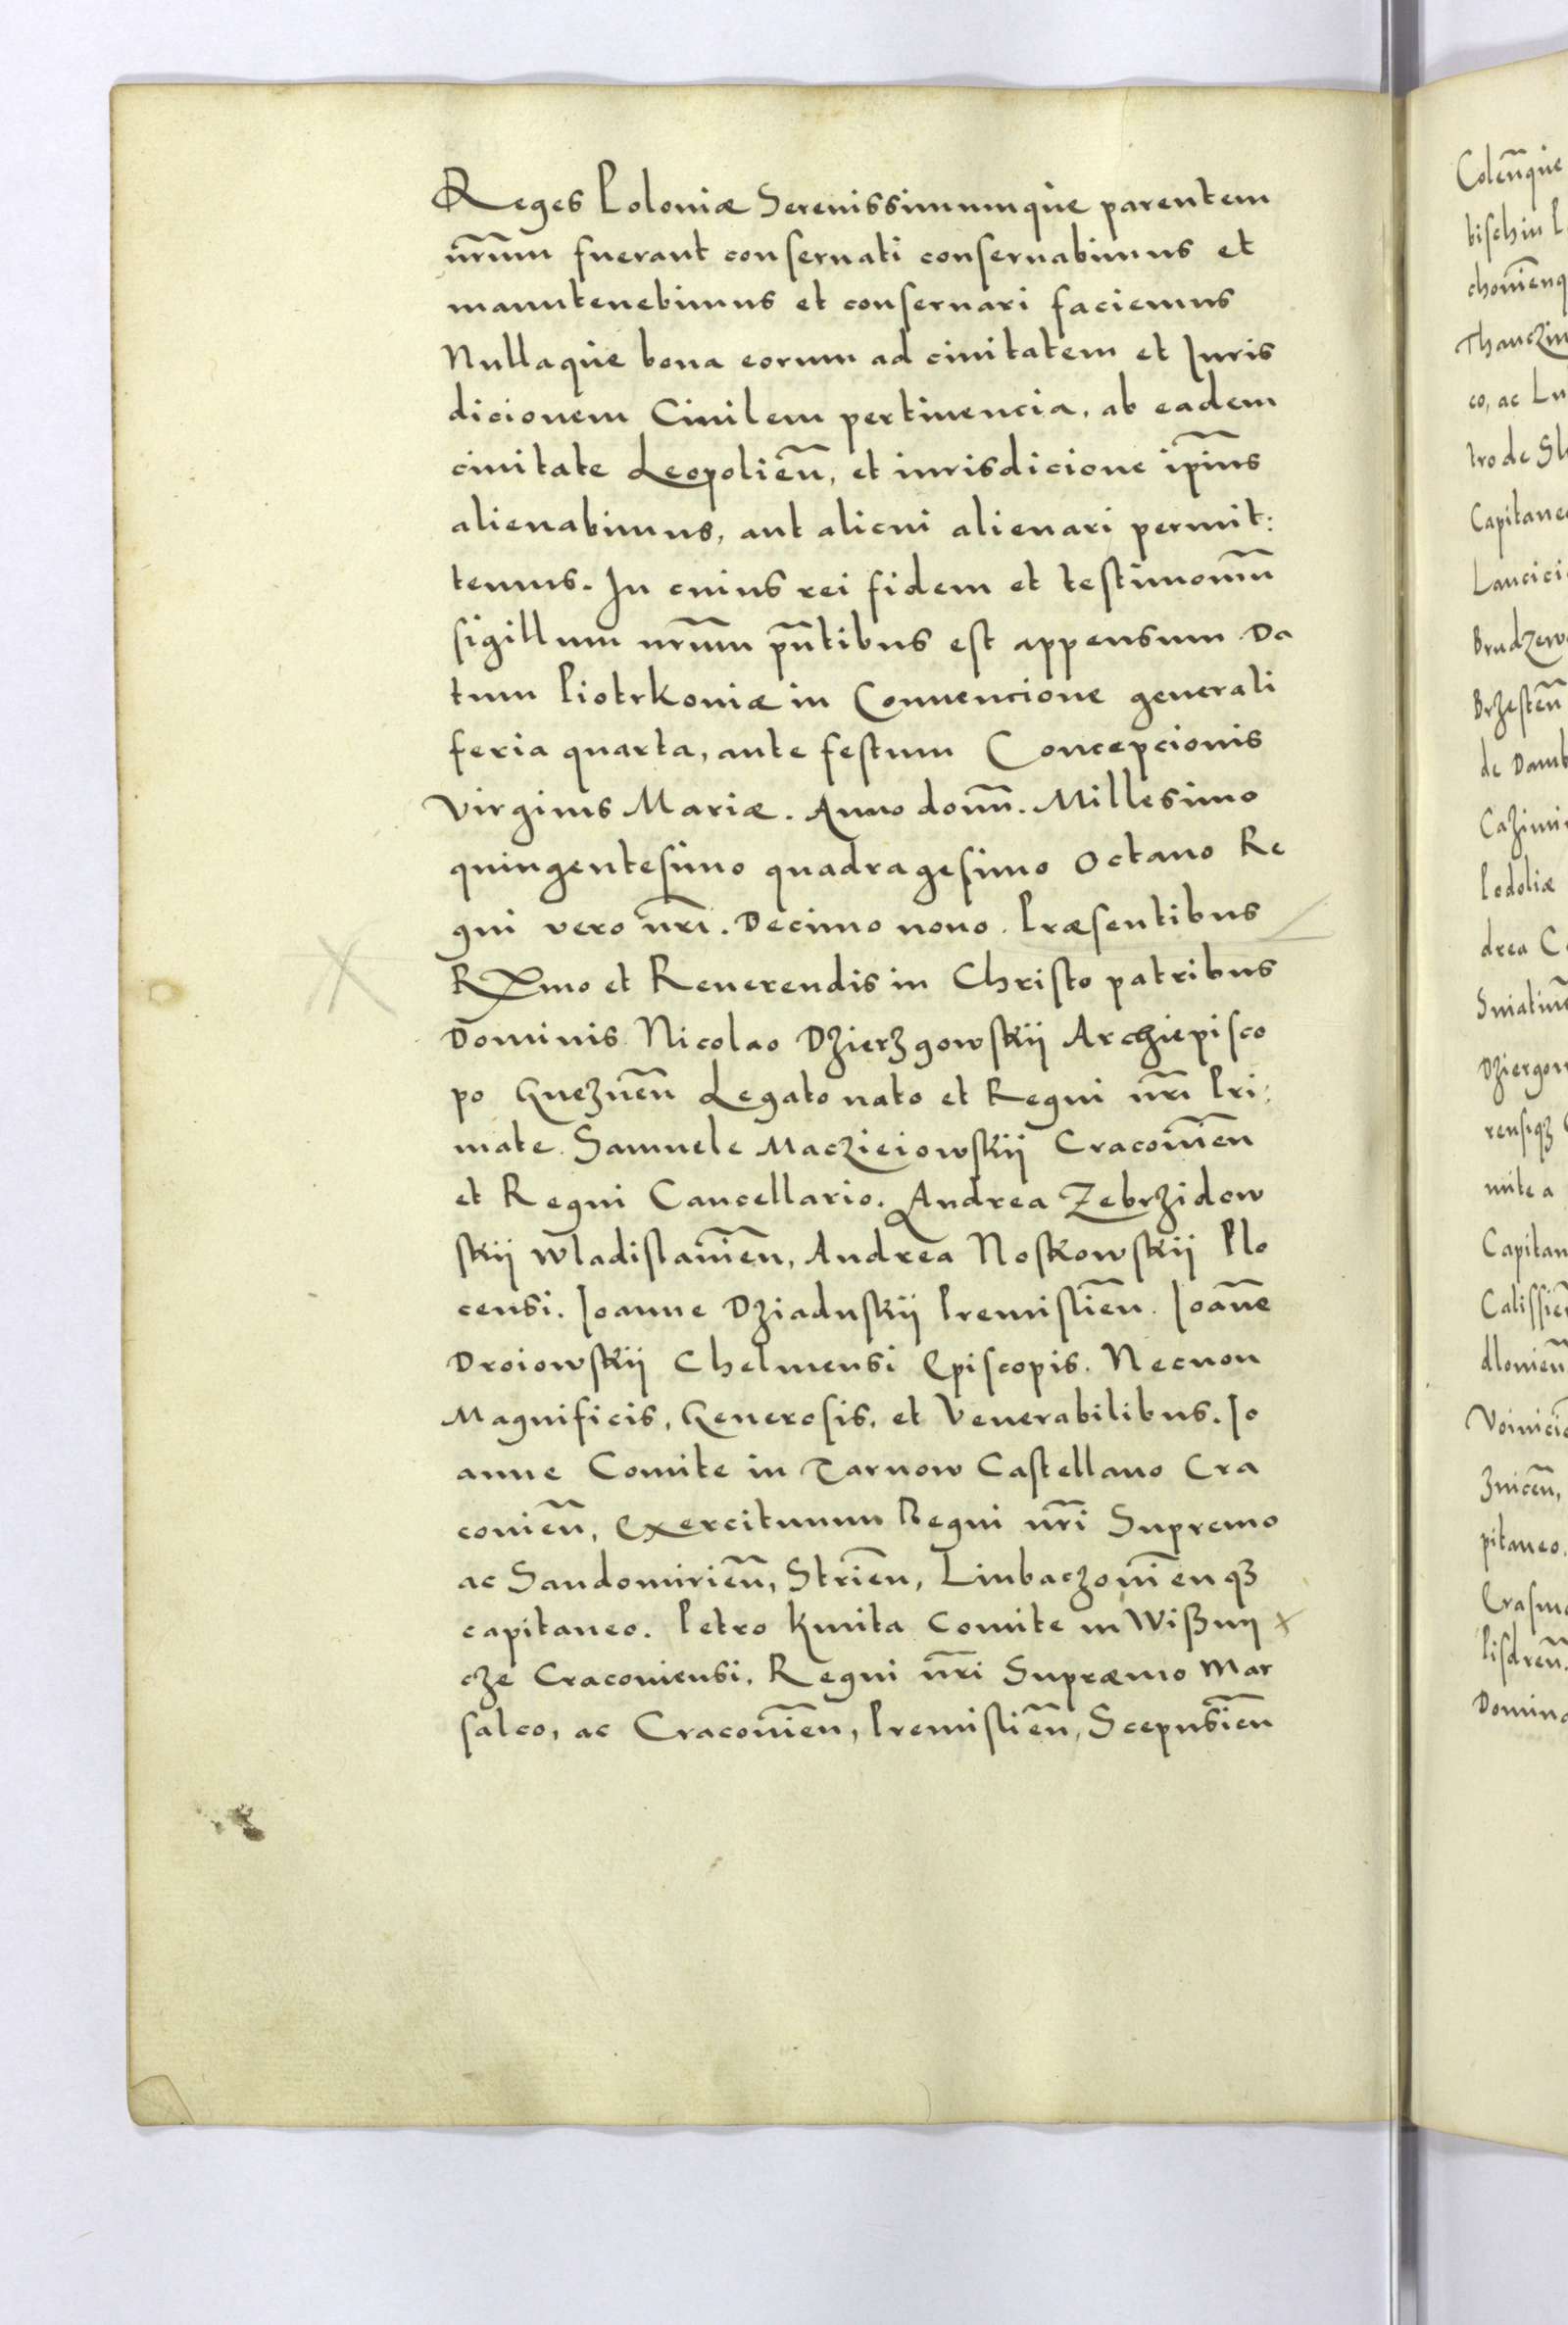 Reges Poloniæ Serenissimumque parentem
nr̄um fuerant conseruati conseruabimus et
manutenebimus et conseruari faciemus
Nullaque bona eorum ad ciuitatem et Iuris
dicionem Ciuilem pertinencia, ab eadem
ciuitate Leopolien̄, et iurisdicione ip̄ius
alienabimus, aut alicui alienari permit:
temus. In cuius rei fidem et testimoniū
sigillum nr̄um pn̄tibus est appensum Da
tum Piotrkouiæ in Conuencione generali
feria quarta, ante festum Concepcionis
Virginis Mariæ. Anno domn̄. Millesimo
quingentesimo quadragesimo Octauo Re
gni vero nr̄i. Decimo nono. Præsentibus
Rx̄mo et Reuerendis in Christo patribus
Dominis Nicolao Dzierzgowskÿ Archiepisco
po Gneznen̄ Legato nato et Regni nr̄i Pri:
mate. Samuele Maczieiowskÿ Cracouien̄
et Regni Cancellario. Andrea Zebrzidow
skÿ Wladislauien̄, Andrea Noskowskÿ Plo
censi. Ioanne Dziaduskÿ Premislien̄. Ioān̄e
Droiowskÿ Chelmensi Episcopis. Necnon
Magnificis, Generosis, et Venerabilibus. Io
anne Comite in Tarnow Castellano Cra
couien̄, Exercituum Regni nr̄i Supremo
ac Sandomirien̄, Strien̄, Liubaczouien̄qꝫ
capitaneo. Petro Kmita Comite in Wißnÿ
cze Cracouiensi, Regni nr̄i Supræmo Mar
salco, ac Cracouien̄, Premislien̄, Scepusien̄
Colen̄que
bischin P
chouien̄q
Thanczin
co, ac Lu
tro de Sl
Capitane
Lancici
Brudzew
Brzesten̄
de Damb
Cazimi
Podoliæ
drea C
Sniatin̄
Dziergow
rensiqꝫ
mite a
Capitan
Calissien̄
dlouien̄
Voinici
znicen̄,
pitaneo.
Erasm
lisdren̄
Domin